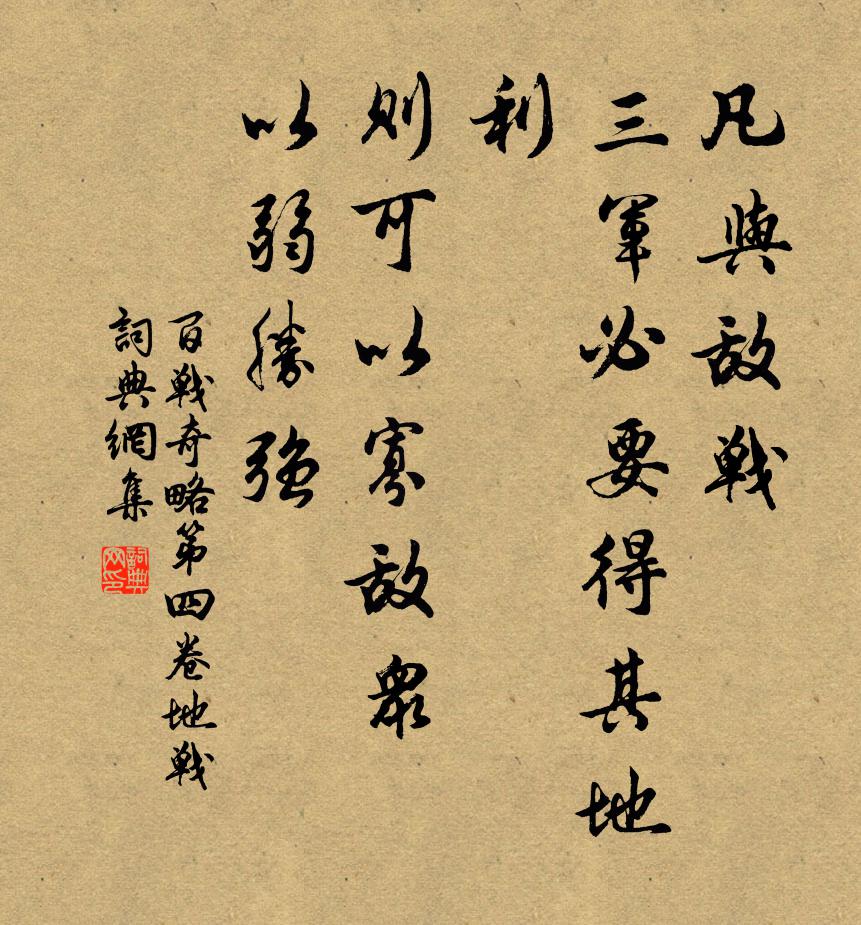 凡與敌戰
三軍必要得其地
利
則可以寡敌眾
以弱勝強
百戰奇略第四卷地戰
詞典網集
詞典
网印